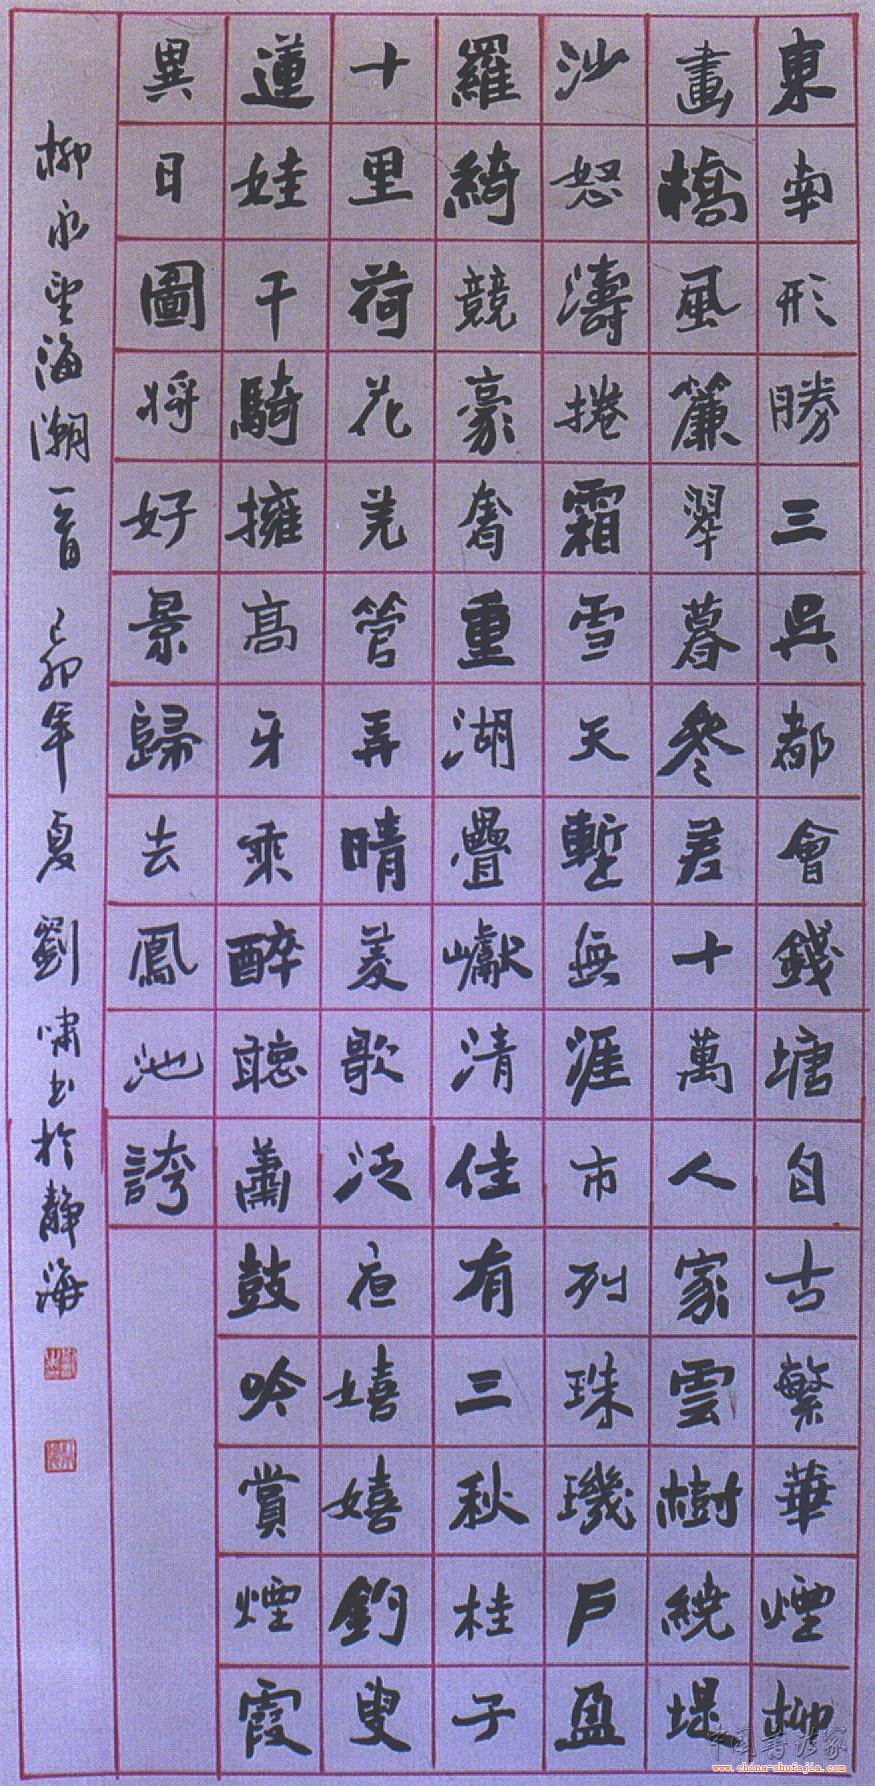 東南形勝三吳都會錢塘自古繁華煙柳
畫橋風簾翠暮參差十萬人家雲樹繞堤
沙怒濤捲霜雪天塹無涯市列珠璣戶盈
羅綺競豪奢重湖疊巘清佳有三秋桂子
十里荷花羌管弄晴菱歌泛夜嬉嬉釣叟
蓮娃千騎擁高牙乘醉聽蕭鼓吟賞煙霞
異日圖將好景歸去鳳池誇
柳永望海潮一首 己卯年夏 劉嘯書於靜海
中國書法家
www.china-shufajia.com